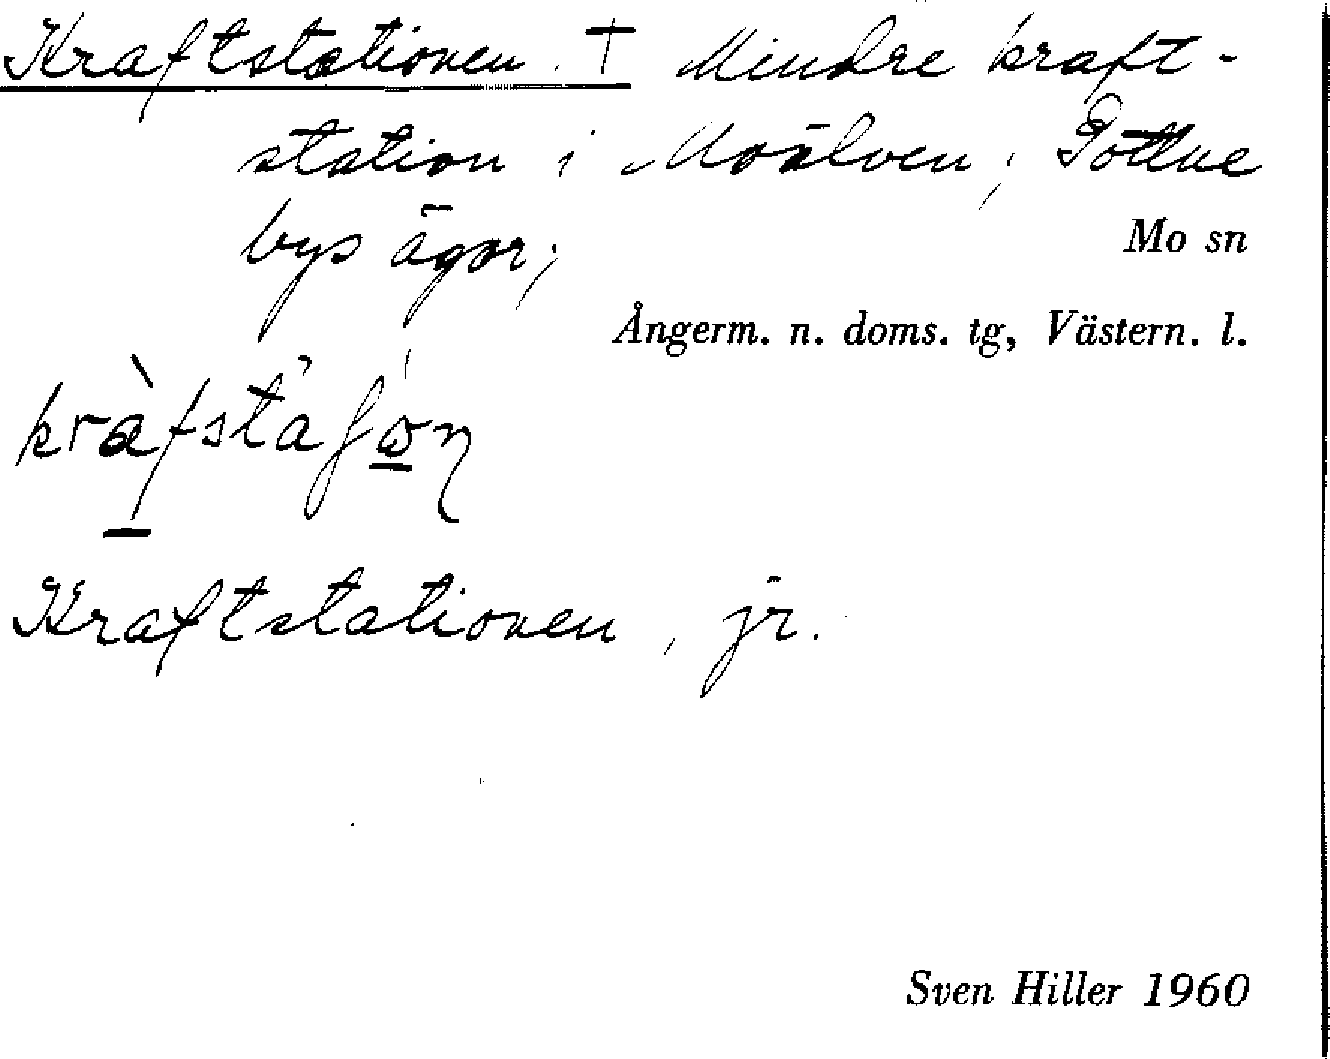 Kraftstationen. † Mindre kraft-
station i Moälven, Pottne
bys ägor;
Mo sn
Ångerm. n. doms. tg, Västern. l.
kràfstaʃon
Kraftstationen, jr.
Sven Hiller 1960